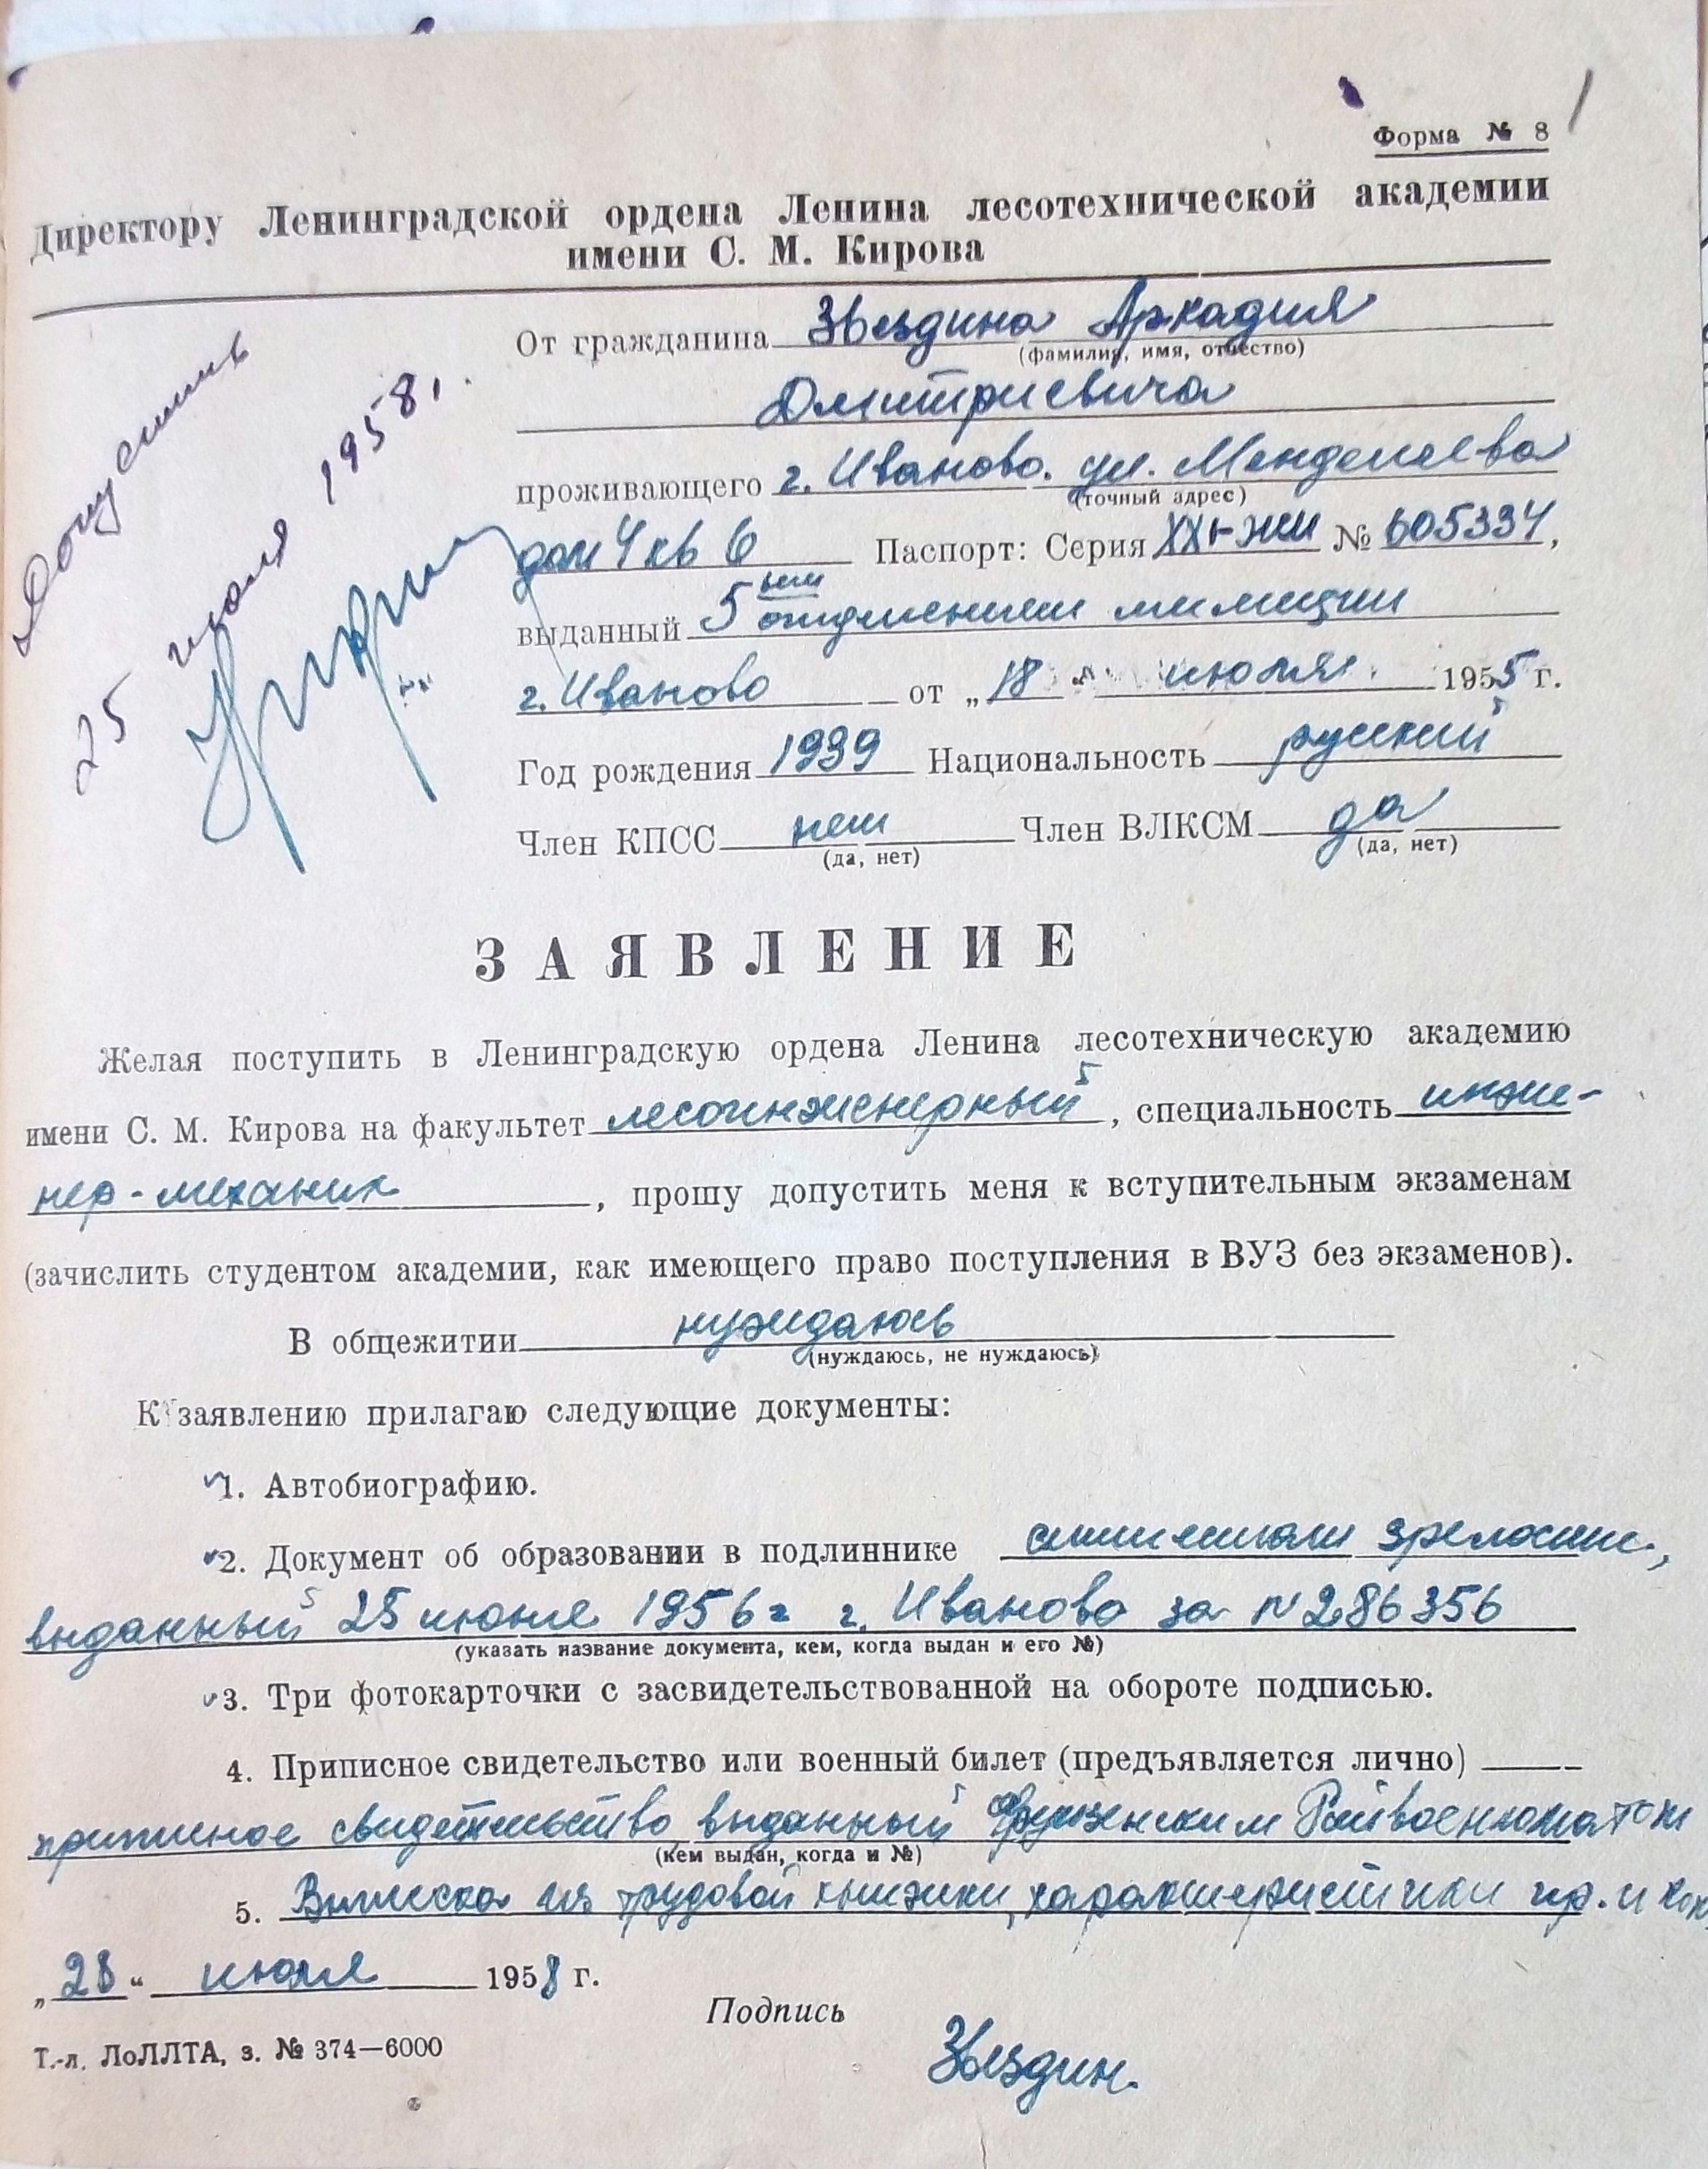 Форма № 8
Директору Ленинградской ордена Ленина лесотехнической академии
имени С. М. Кирова
Допустить
25 июля 1958 г.
От гражданина Звездина Аркадия
(фамилия, имя, отчество)
Дмитриевича
проживающего г. Иваново. ул. Менделеева
(точный адрес)
дом 4 кв 6 Паспорт: Серия № 605334,
выданный 5 ым отделением милиции
г. Иваново от „18“ июля 1955 г.
Год рождения 1939 Национальность русский
Член КПСС нет Член ВЛКСМ да
(да, нет) (да, нет)
ЗАЯВЛЕНИЕ
Желая поступить в Ленинградскую ордена Ленина лесотехническую академию
имени С. М. Кирова на факультет лесоинженерный, специальность инже-
нер-механик, прошу допустить меня к вступительным экзаменам
(зачислить студентом академии, как имеющего право поступления в ВУЗ без экзаменов).
В общежитии нуждаюсь
(нуждаюсь, не нуждаюсь)
К заявлению прилагаю следующие документы:
1. Автобиографию.
2. Документ об образовании в подлиннике аттестат зрелости,
выданный 25 июня 1956 г г. Иваново за N 286356
(указать название документа, кем, когда выдан и его №)
3. Три фотокарточки с засвидетельствованной на обороте подписью.
4. Приписное свидетельство или военный билет (предъявляется лично)
приписное свидетельство выданный Фрунзенским Райвоенкоматом
(кем выдан, когда и №)
5. Выписка из трудовой книжки, характеристики пр. и ком
„28“ июля 1958 г.
Подпись
Звездин.
Т.-л. ЛоЛЛТА, з. № 374—6000